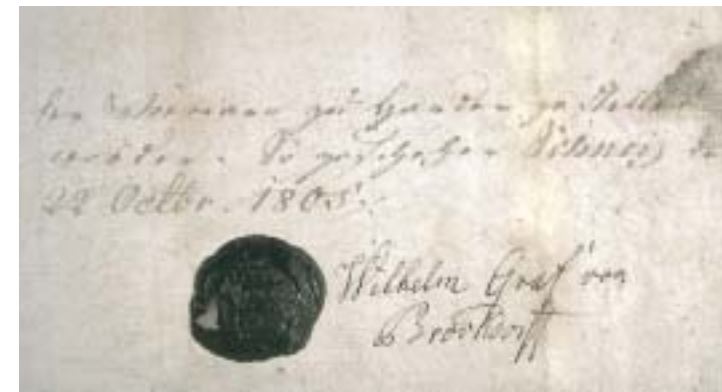 zu Handen gestellt
worden. So geschehen Schney d
22 Octbr. 1805.
Wilhelm Graf von
Brockdorff